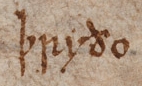 þryðo